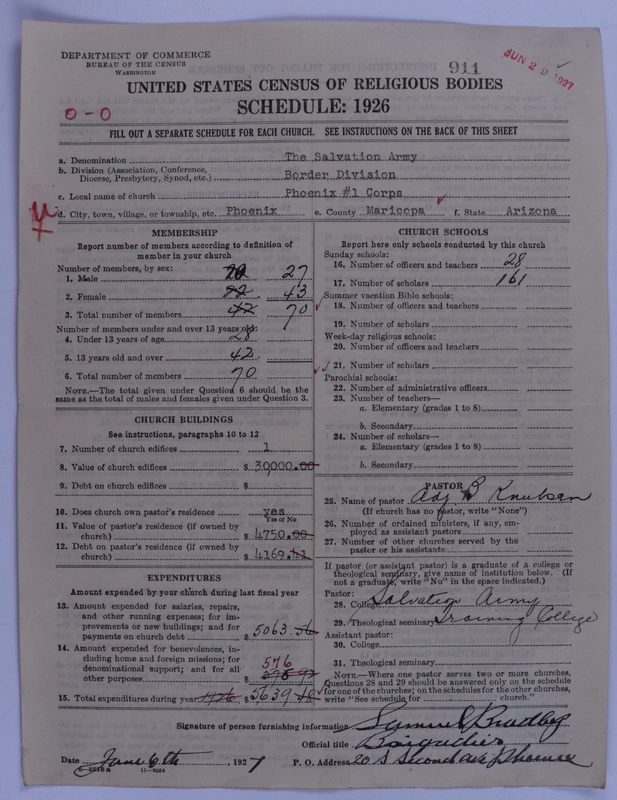 DEPARTMENT OF COMMERCE
BUREAU OF THE CENSUS
WASHINGTON
911
JUN 29 1927
UNITED STATES CENSUS OF RELIGIOUS BODIES
SCHEDULE: 1926
0-0
FILL OUT A SEPARATE SCHEDULE FOR EACH CHURCH. SEE INSTRUCTIONS ON THE BACK OF THIS SHEET
a. Denomination The Salvation Army
b. Division (Association, Conference, Diocese, Presbytery, Synod, etc.) Border Division
c. Local name of church Phoenix #1 Corps
d. City, town, village, or township, etc. Phoenix e. County Maricopa f. State Arizona
MEMBERSHIP
Report number of members according to definition of
member in your church
Number of members, by sex:
1. Male 27
2. Female 22 43
3. Total number of members 42 70
Number of members under and over 13 years old:
4. Under 13 years of age 28
5. 13 years old and over 42
6. Total number of members 70
NOTE.—The total given under Question 6 should be the
same as the total of males and females given under Question 3.
CHURCH BUILDINGS
See instructions, paragraphs 10 to 12
7. Number of church edifices 1
8. Value of church edifices $ 30000.00
9. Debt on church edifices $
10. Does church own pastor's residence? yes
Yes or No
11. Value of pastor's residence (if owned by
church) $ 4750.00
12. Debt on pastor's residence (if owned by
church) $ 4169.41
EXPENDITURES
Amount expended by your church during last fiscal year
13. Amount expended for salaries, repairs,
and other running expenses; for im-
provements or new buildings; and for
payments on church debt $ 5063.56
14. Amount expended for benevolences, in-
cluding home and foreign missions; for
denominational support; and for all
other purposes $ 576
15. Total expenditures during year 1926 $ 5639
CHURCH SCHOOLS
Report here only schools conducted by this church
Sunday schools:
16. Number of officers and teachers 28
17. Number of scholars 161
Summer vacation Bible schools:
18. Number of officers and teachers
19. Number of scholars
Week-day religious schools:
20. Number of officers and teachers
21. Number of scholars
Parochial schools:
22. Number of administrative officers
23. Number of teachers—
a. Elementary (grades 1 to 8)
b. Secondary
24. Number of scholars—
a. Elementary (grades 1 to 8)
b. Secondary
PASTOR
25. Name of pastor Adj. B Knutsen
(If church has no pastor, write "None")
26. Number of ordained ministers, if any, em-
ployed as assistant pastors
27. Number of other churches served by the
pastor or his assistants
If pastor (or assistant pastor) is a graduate of a college or
theological seminary, give name of institution below. (If
not a graduate, write "No" in the space indicated.)
Pastor:
28. College Salvation Army
29. Theological seminary Training College
Assistant pastor:
30. College
31. Theological seminary
NOTE.—Where one pastor serves two or more churches,
Questions 28 and 29 should be answered only on the schedule
for one of the churches; on the schedules for the other churches,
write "See schedule for church."
Signature of person furnishing information Samuel Bradley
Official title Brigadier
Date June 6th, 1927 P. O. Address 20 S Second Ave Phoenix
8-551a 11-9664